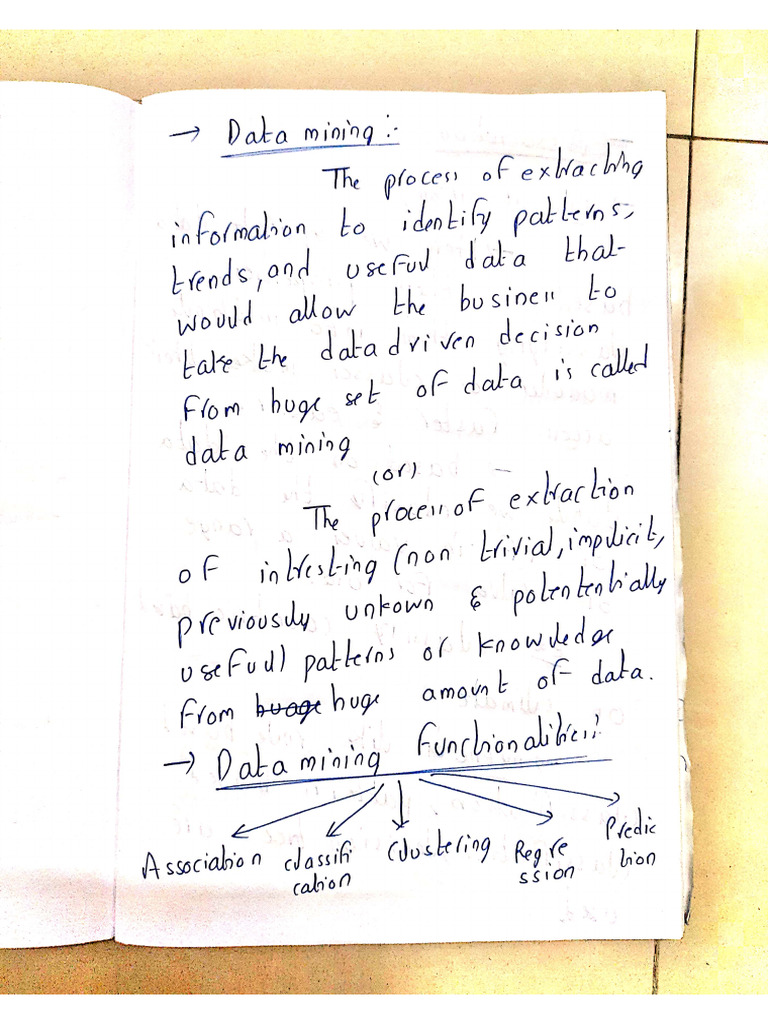 → Data mining :-
The process of extracting
information to identify patterns,
trends, and useful data that
would allow the business to
take the data driven decision
from huge set of data is called
data mining
(or)
The process of extraction
of intresting (non trivial, implicit,
previously unkown & potententially
useful) patterns or knowledge
from huage huge amount of data.
→ Data mining functionalities:
Association classifi cation Clustering Regre ssion Predic tion